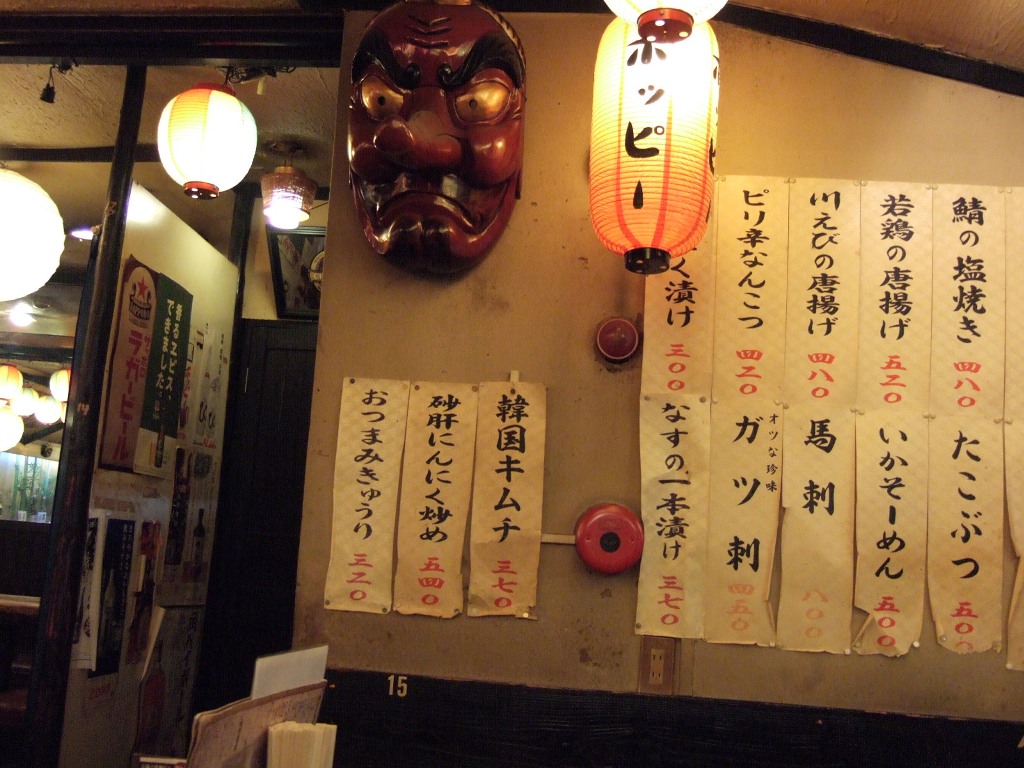 ホッピー
鯖の塩焼き 四八〇
若鶏の唐揚げ 五二〇
川えびの唐揚げ 四八〇
ピリ辛なんこつ 四二〇
く漬け 三〇〇
たこぶつ 五〇〇
いかそーめん 五〇〇
馬刺 八〇〇
オツな珍味
ガツ刺 四五〇
なすの一本漬け 三七〇
韓国キムチ 三七〇
砂肝にんにく炒め 五四〇
おつまみきゅうり 三二〇
ラガービール
香るヱビス、
できました。
15